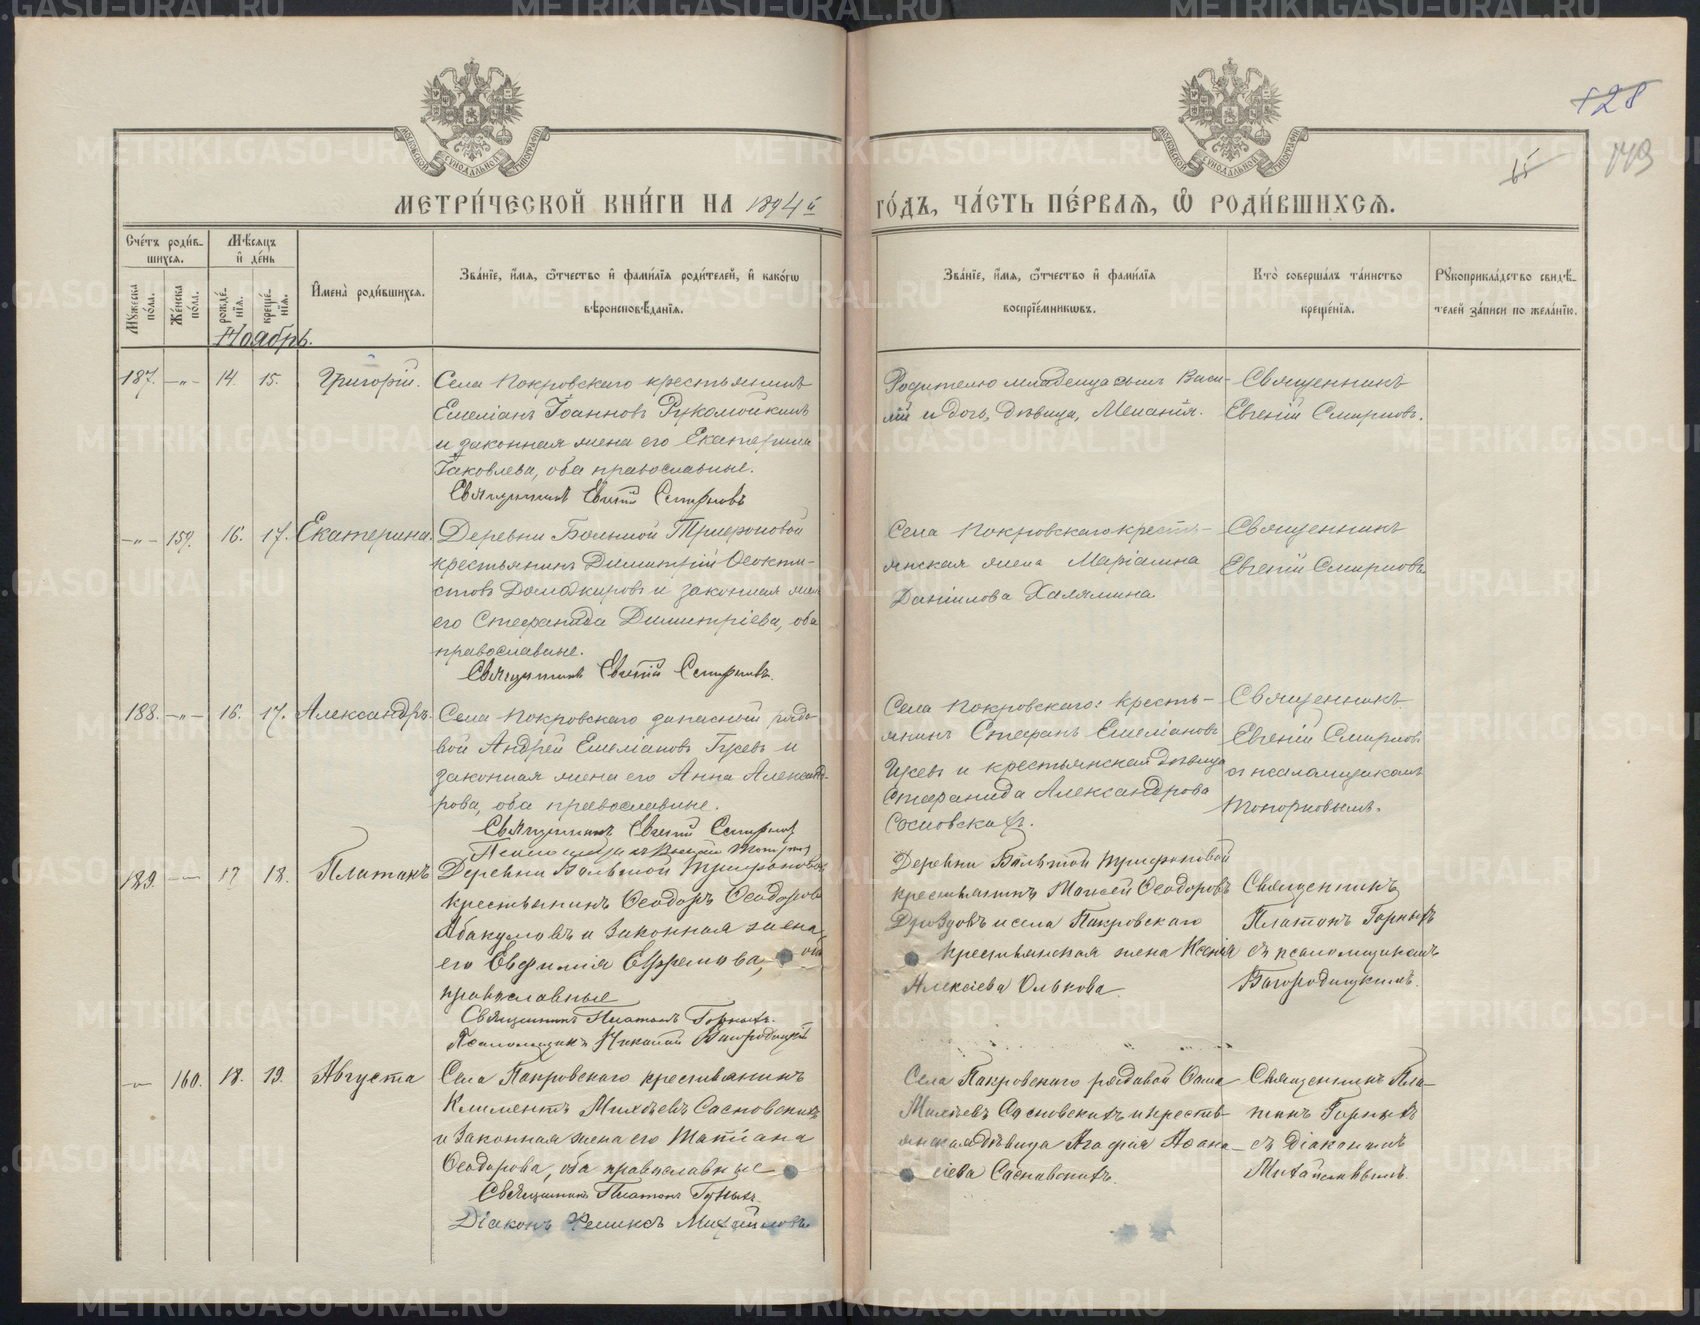 128
65
МЕТРИ́ЧЕСКОЙ КНИ́ГИ НА 1894й ГО́ДЪ, ЧА́СТЬ ПЕ́РВАЯ, Ѡ҆ РОДИ́ВШИХСЯ.
Сче́тъ роди́в-
шихся.
Мѣ́сяцъ
и҆ де́нь
Мꙋ́жеска по́ла.
Же́нска по́ла.
рожде́-
нїя.
креще́-
нїя.
И҆мена̀ роди́вшихся.
Зва́нїе, и҆́мя, ѻ҆́тчество и҆ фами́лїя роди́телей, и҆ како́гѡ
вѣроисповѣ́данїя.
Зва́нїе, и҆́мя, ѻ҆́тчество и҆ фами́лїя
воспрїе́мникѡвъ.
Кто̀ соверша́лъ та́инство
креще́нїя.
Рꙋкоприкла́дство свидѣ́-
телей за́писи по жела́нїю.
Ноябрь.
187.
-"-
14.
15.
Григорій.
Села Покровскаго крестьянинъ
Емеліанъ Іоанновъ Рукомойкинъ
и законная жена его Екатерина
Іаковлева, оба православные.
Священникъ Евгеній Смирновъ
Родителю младенца сынъ Васи-
лій и дочь, дѣвица, Меланія.
Священникъ
Евгеній Смирновъ.
-"-
159.
16.
17.
Екатерина.
Деревни Большой Трифоновой
крестьянинъ Димитрій Ѳеокти-
стовъ Доможировъ и законная жена
его Стефанида Димитріева, оба
православные.
Священникъ Евгеній Смирновъ.
Села Покровскаго кресть-
янская жена Маріамна
Даніилова Халямина
Священникъ
Евгеній Смирновъ
188.
-"-
16.
17.
Александръ.
Села Покровскаго запасной рядо-
вой Андрей Емеліановъ Гусевъ и
законная жена его Анна Александ-
рова, оба православные.
Священникъ Евгеній Смирновъ
Псаломщикъ
Села Покровскаго: кресть-
янинъ Стефанъ Емеліановъ
Гусевъ и крестьянская дѣвица
Стефанида Александрова
Сосновских.
Священникъ
Евгеній Смирновъ
съ псаломщикомъ
Топорковымъ.
189.
17
18.
Платонъ
Деревни Большой Трифоновой
крестьянинъ Ѳеодоръ Ѳеодоровъ
Абакумовъ и законная жена
его Евфимія Ефремова, оба
православные
Священникъ Платонъ Горныхъ.
Псаломщикъ Николай Богородицкій
Деревни Большой Трифоновой
крестьянинъ Моисей Ѳеодоровъ
Дроздовъ и села Покровскаго
крестьянская жена Ксенія
Алексіева Олькова.
Священникъ
Платонъ Горныхъ
съ псаломщикомъ
Богородицкимъ.
160.
18.
19.
Августа
Села Покровскаго крестьянинъ
Климентъ Михѣевъ Сосновскихъ
и законная жена его Татіана
Ѳеодорова, оба православные
Священникъ Платонъ Горныхъ.
Діаконъ Феликсъ Михайловъ.
Села Покровскаго рядовой Ѳома
Михѣевъ Сосновскихъ и кресть-
янская дѣвица Агафія Аѳана-
сіева Сосновскихъ.
Священникъ Пла-
тонъ Горныхъ
съ діакономъ
Михайловымъ.
METRIKI.GASO-URAL.RU